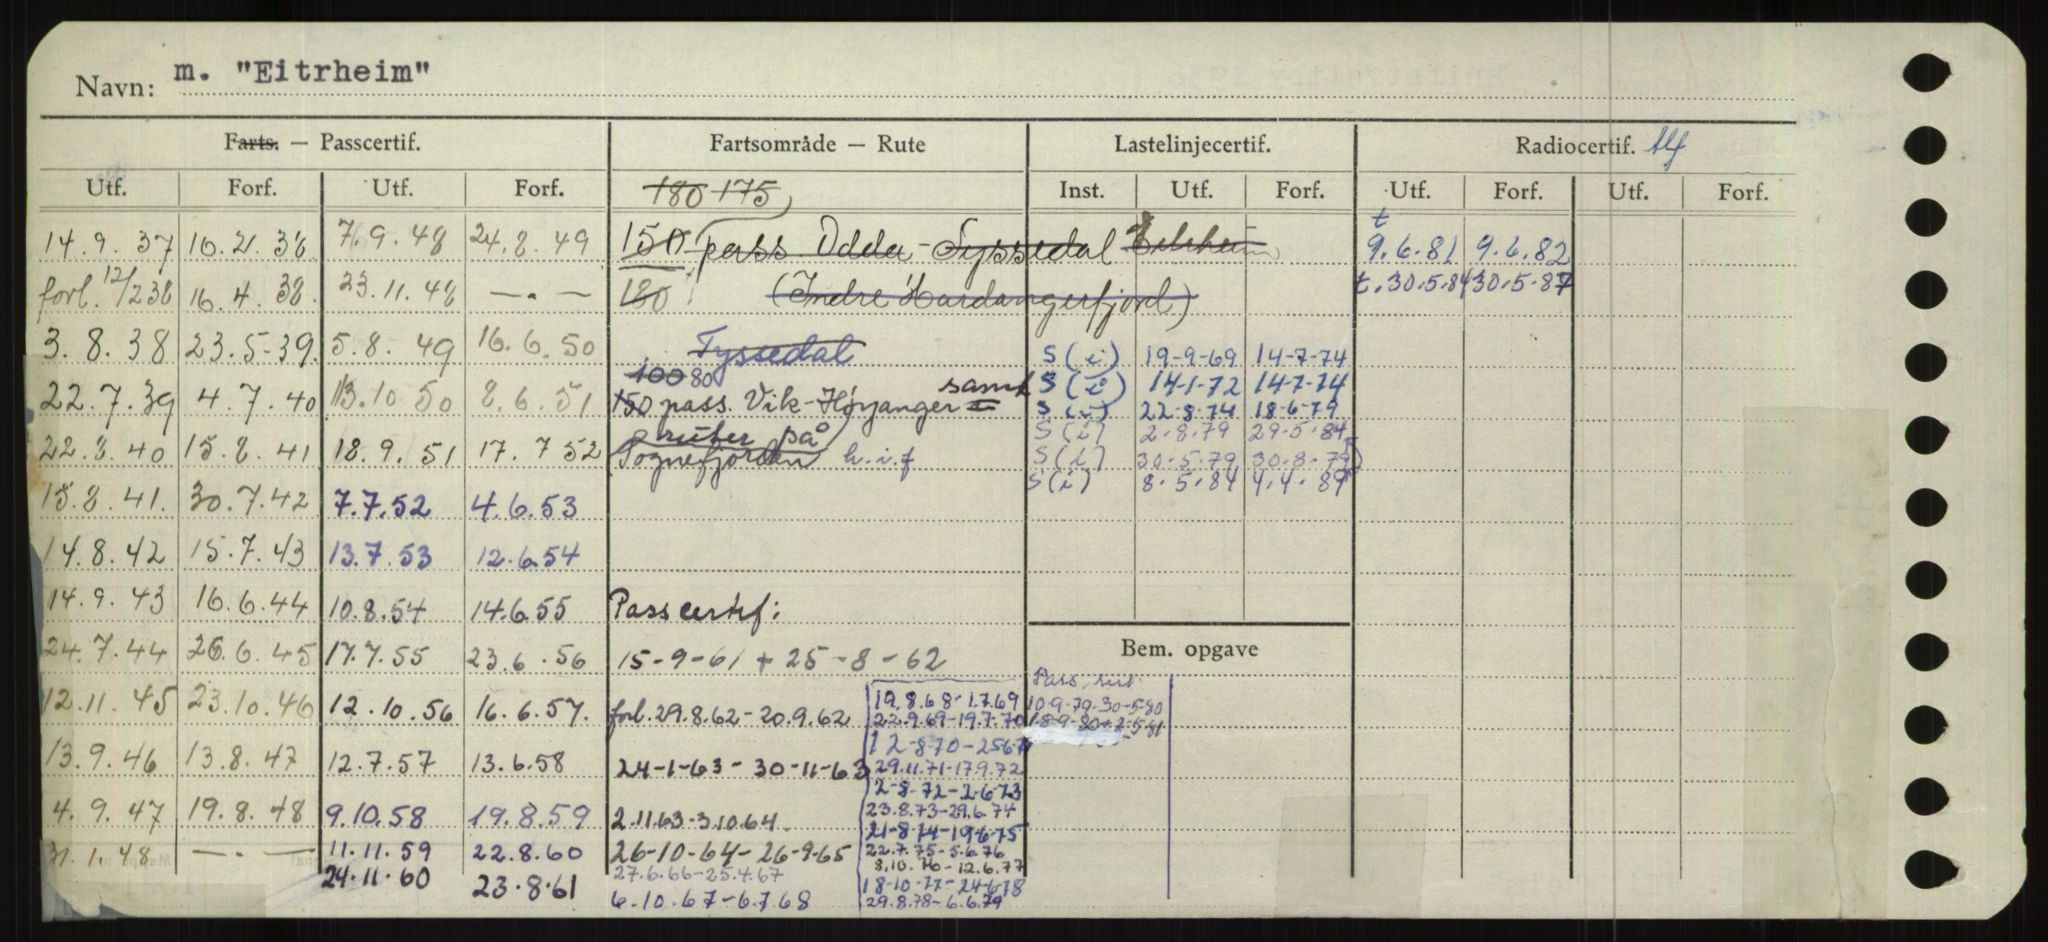 Navn: m. "Eitrheim"
Farts. — Passcertif. Fartsområde — Rute Lastelinjecertif. Radiocertif.
Utf. Forf. Utf. Forf. 180 175 Inst. Utf. Forf. Utf. Forf. Utf. Forf.
14.9.37 16.2.38 7.9.48 24.8.49 150 pass. Odda - Tyssedal Eitrheim t 9.6.81 9.6.82
forl. 12/2 38 16.4.38. 23.11.48 — . — 180 (Indre Hardangerfjord) t.30.5.84 30.5.87
3.8.38 23.5.39. 5.8.49 16.6.50 Tyssedal S (i) 19-9-69 14-7-74
22.7.39 4.7.40 13.10.50 8.6.51 100 80 150 pass. Vik-Høyanger samt S (i) 14-1-72 14-7-74
S (i) 22-8-74 18-6-79
22.8.40 15.8.41 18.9.51 17.7.52 ruter på Sognefjorden h.i.f S (i) 2.8.79 29.5.84
S (i) 30.5.79 30.8.79
15.8.41. 30.7.42 7.7.52 4.6.53 S (i) 8.5.84 4.4.89
14.8.42 15.7.43 13.7.53 12.6.54
14.9.43 16.6.44 10.8.54 14.6.55 Passcertif:
24.7.44 26.6.45 17.7.55 23.6.56 15-9-61 + 25-8-62 Bem. opgave
12.11.45 23.10.46 12.10.56 16.6.57. forl. 29.8.62-20.9.62 19.8.68-1.7.69 Pass. 10-9-79-30-5-80
22.9.69-19.7.70 18-9-80-2-5-81
12-8-70-256 7
13.9.46 13.8.47 12.7.57 13.6.58 24-1-63 - 30-11-63 29.11.71-17.9.72
2-8-72-2-6-73
4.9.47 19.8.48 9.10.58 19.8.59 2.11.63-3.10.64. 23.8.73-29.6.74
21-8-74-19-6-75
31.1.48 — . — 11.11.59 22.8.60 26-10-64-26-9-65 22.7.75-5.6.76
8.10.76-12.6.77
24.11.60 23.8.61 27.6.66-25.4.67 18-10-77-24-6-78
6.10.67-6.7.68 29.8.78-6.6.79